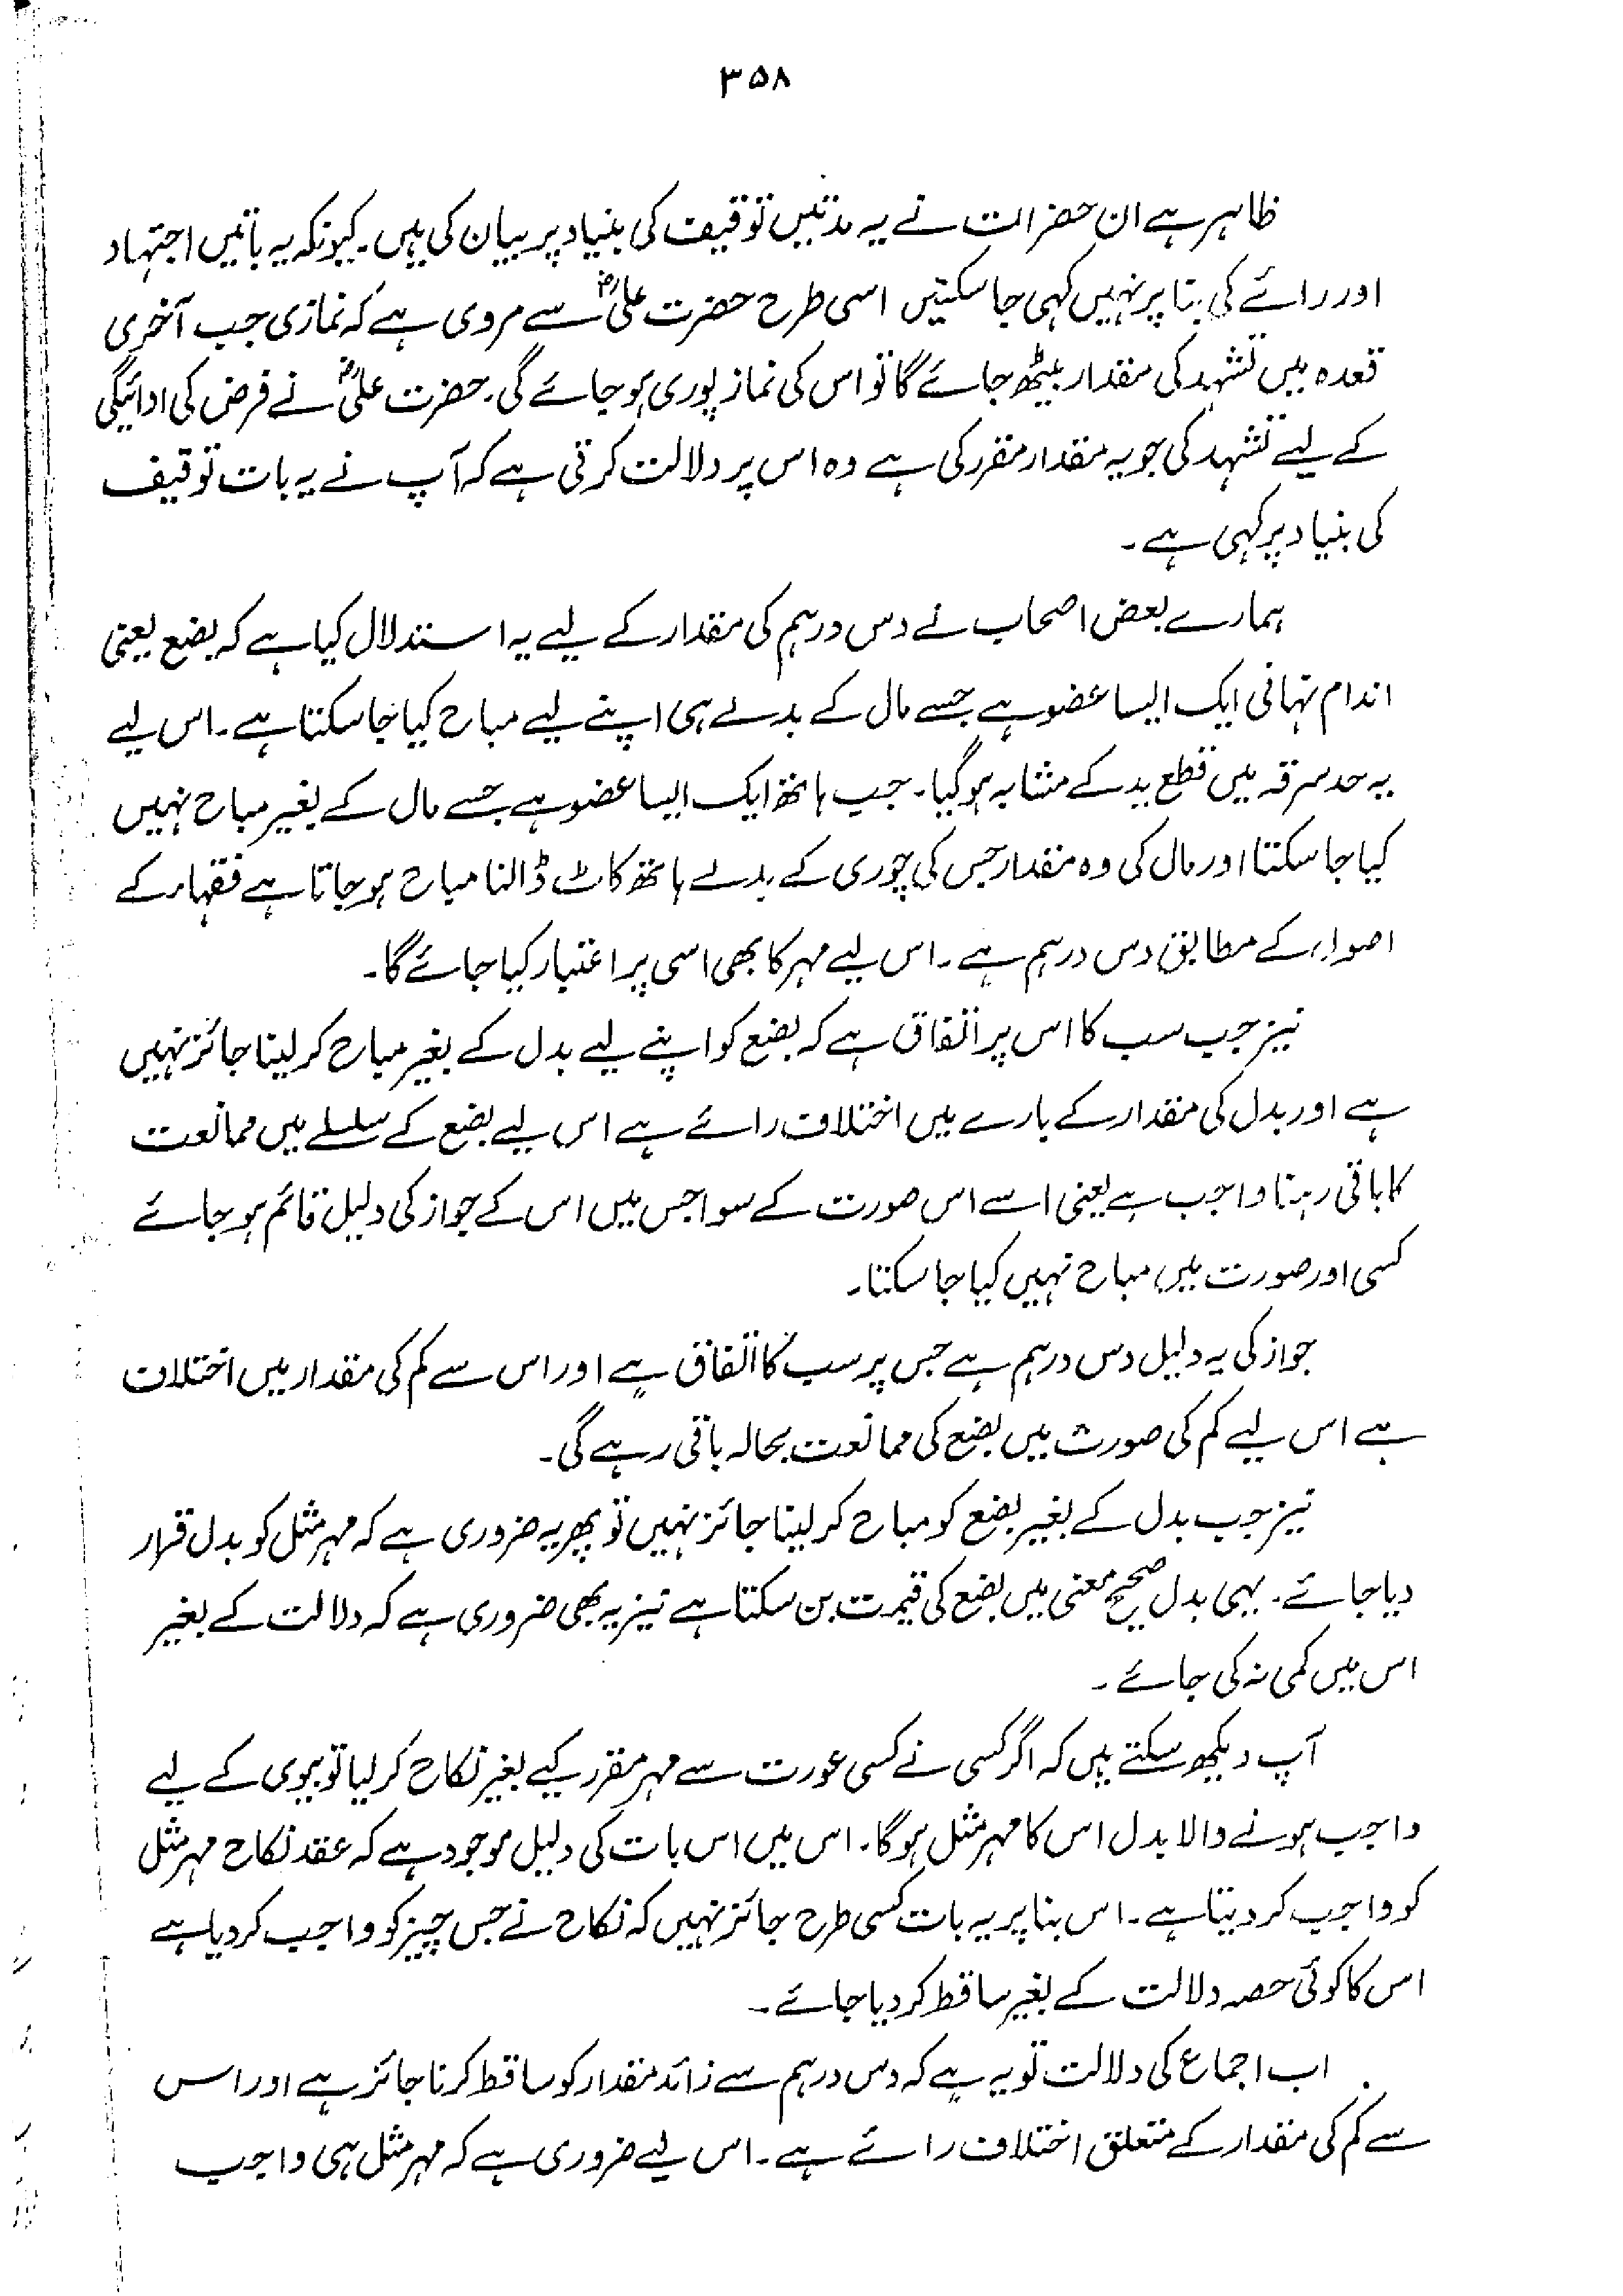 ۳۵۸
ظاہر ہے ان حضرات نے یہ مدتیں توقیف کی بنیاد پر بیان کی ہیں۔ کیونکہ یہ باتیں اجتہاد
اور رائے کی بنا پر نہیں کہی جا سکتیں اسی طرح حضرت علیؓ سے مروی ہے کہ نمازی جب آخری
قعدہ میں تشہد کی مقدار بیٹھ جائے گا تو اس کی نماز پوری ہو جائے گی۔ حضرت علیؓ نے فرض کی ادائیگی
کے لیے تشہد کی جو یہ مقدار مقرر کی ہے وہ اس پر دلالت کرتی ہے کہ آپ نے یہ بات توقیف
کی بنیاد پر کہی ہے۔
ہمارے بعض اصحاب نے دس درہم کی مقدار کے لیے یہ استدلال کیا ہے کہ بضع یعنی
اندام نہانی ایک ایسا عضو ہے جسے مال کے بدلے ہی اپنے لیے مباح کیا جا سکتا ہے۔ اس لیے
یہ حد سرقہ میں قطع ید کے مشابہ ہو گیا۔ جب ہاتھ ایک ایسا عضو ہے جسے مال کے بغیر مباح نہیں
کیا جا سکتا اور مال کی وہ مقدار جس کی چوری کے بدلے ہاتھ کاٹ ڈالنا مباح ہو جاتا ہے فقہاء کے
اصول کے مطابق دس درہم ہے۔ اس لیے مہر کا بھی اسی پر اعتبار کیا جائے گا۔
نیز جب سب کا اس پر اتفاق ہے کہ بضع کو اپنے لیے بدل کے بغیر مباح کر لینا جائز نہیں
ہے اور بدل کی مقدار کے بارے میں اختلاف رائے ہے اس لیے بضع کے سلسلے میں ممانعت
کا باقی رہنا واجب ہے یعنی اسے اس صورت کے سوا جس میں اس کے جواز کی دلیل قائم ہو جائے
کسی اور صورت میں مباح نہیں کیا جا سکتا۔
جواز کی یہ دلیل دس درہم ہے جس پر سب کا اتفاق ہے اور اس سے کم کی مقدار میں اختلاف
ہے اس لیے کم کی صورت میں بضع کی ممانعت بحالہ باقی رہے گی۔
نیز جب بدل کے بغیر بضع کو مباح کر لینا جائز نہیں تو پھر یہ ضروری ہے کہ مہر مثل کو بدل قرار
دیا جائے۔ یہی بدل صحیح معنی میں بضع کی قیمت بن سکتا ہے نیز یہ بھی ضروری ہے کہ دلالت کے بغیر
اس میں کمی نہ کی جائے۔
آپ دیکھ سکتے ہیں کہ اگر کسی نے کسی عورت سے مہر مقرر کیے بغیر نکاح کر لیا تو بیوی کے لیے
واجب ہونے والا بدل اس کا مہر مثل ہو گا۔ اس میں اس بات کی دلیل موجود ہے کہ عقد نکاح مہر مثل
کو واجب کر دیتا ہے۔ اس بنا پر یہ بات کسی طرح جائز نہیں کہ نکاح نے جس چیز کو واجب کر دیا ہے
اس کا کوئی حصہ دلالت کے بغیر ساقط کر دیا جائے۔
اب اجماع کی دلالت تو یہ ہے کہ دس درہم سے زائد مقدار کو ساقط کرنا جائز ہے اور اس
سے کم کی مقدار کے متعلق اختلاف رائے ہے۔ اس لیے ضروری ہے کہ مہر مثل ہی واجب